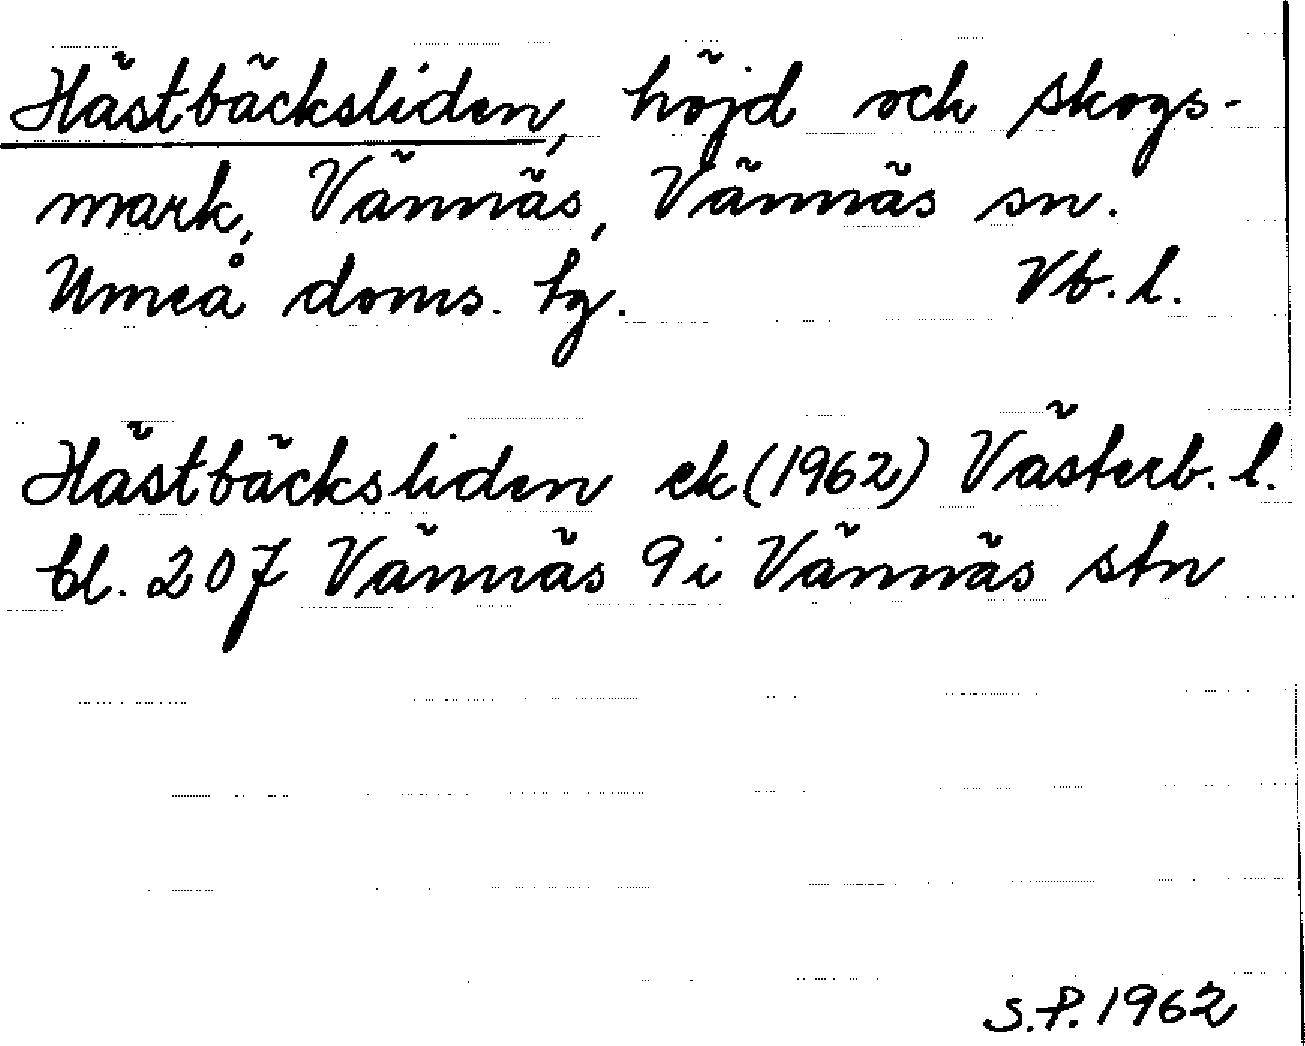 Hästbäcksliden, höjd och skogs-
mark, Vännäs, Vännäs sn.
Umeå doms. tg. Vb. l.
Hästbäcksliden ek (1962) Västerb. l.
bl. 207 Vännäs 9i Vännäs stn
S.P. 1962